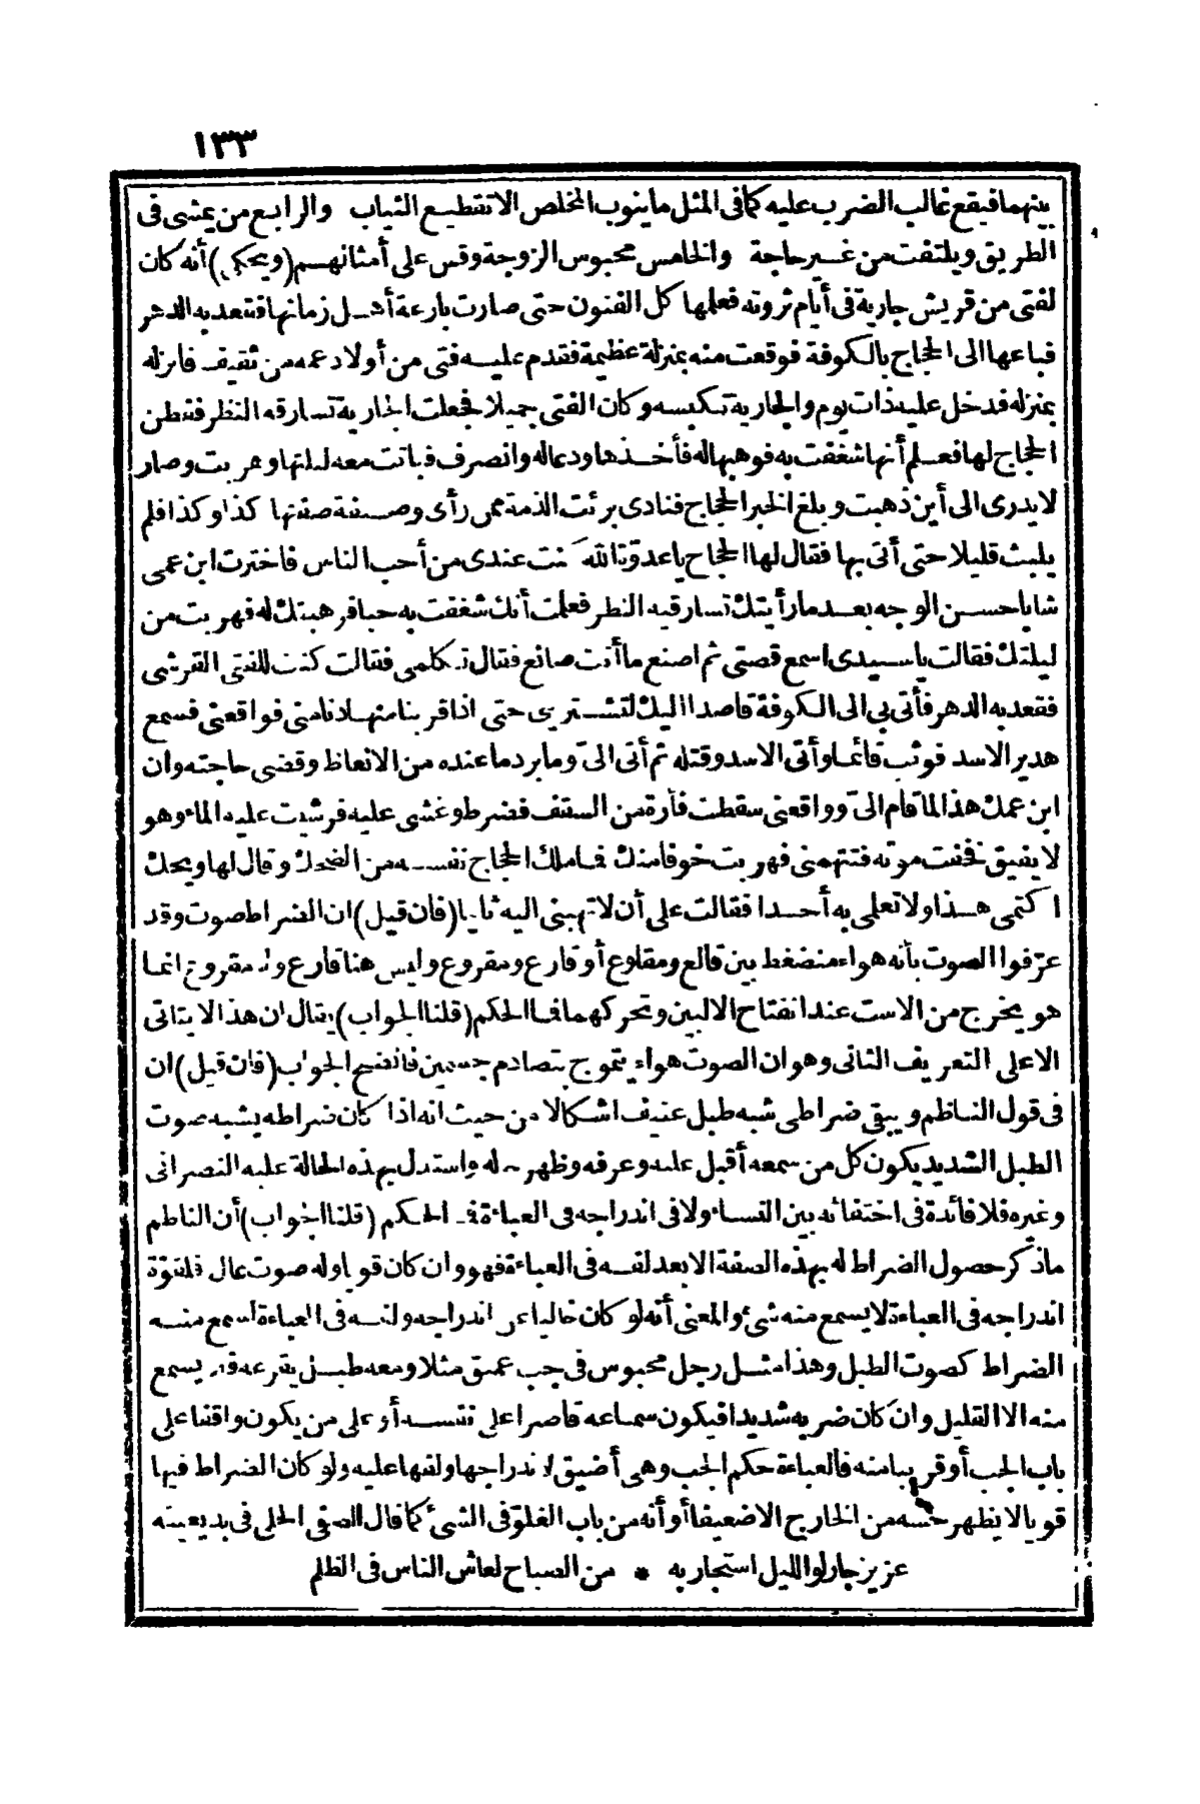 ١٣٣
بينهما فيقع غالب الضرب عليه كما فى المثل ما ينوب المخلص الا تقطيع الثياب والرابع من يمشى فى
الطريق ويلتفت من غير حاجة والخامس محبوس الزوجة وقس على أمثالهم (ويحكى) أنه كان
لفتى من قريش جارية فى أيام ثروته فعلمها كل الفنون حتى صارت بارعة أهل زمانها فقعد به الدهر
فباعها الى الحجاج بالكوفة فوقعت منه بمنزلة عظيمة فقدم عليه فتى من أولاد عمه من ثقيف فانزله
بمنزله فدخل عليه ذات يوم والجارية تكبسه وكان الفتى جميلا فجعلت الجارية تسارقه النظر ففطن
الحجاج لها فعلم أنها شغفت به فوهبها له فأخذها ودعا له وانصرف فباتت معه ليلتها وهربت وصار
لا يدرى الى أين ذهبت وبلغ الخبر الحجاج فنادى برئت الذمة ممن رأى وصيفة صفتها كذا وكذا فلم
يلبث قليلا حتى أتى بها فقال لها الحجاج يا عدوة الله كنت عندى من أحب الناس فاخترت ابن عمى
شابا حسن الوجه بعد ما رأيتك تسارقيه النظر فعلمت أنك شغفت به حبا فوهبتك له فهربت من
ليلتك فقالت يا سيدى اسمع قصتى ثم اصنع ما أنت صانع فقال تكلمى فقالت كنت للفتى القرشى
فقعد به الدهر فأتى بى الى الكوفة قاصدا اليك لتشترينى حتى اذا قربنا منها دنا منى فواقعنى فسمع
هدير الاسد فوثب قائما وأتى الاسد وقتله ثم أتى الىّ وما برد ما عنده من الانعاظ وقضى حاجته وان
ابن عمك هذا لما قام الىّ وواقعنى سقطت فأرة من السقف فضرط وغشى عليه فرشيت عليه الماء وهو
لا يفيق فخفت موته فتتهمنى فهربت خوفا منك فما ملك الحجاج نفسه من الضحك وقال لها ويحك
اكتمى هذا ولا تعلمى به أحدا فقالت على أن لا تهبنى اليه ثانيا (فان قيل) ان الضراط صوت وقد
عرّفوا الصوت بأنه هواء منضغط بين قالع ومقلوع أو قارع ومقروع وليس هنا قارع ولا مقروع انما
هو يخرج من الاست عند انفتاح الاليين وتحركهما فما الحكم (قلنا الجواب) يقال ان هذا لا يتأتى
الا على التعريف الثانى وهو ان الصوت هواء يتموج بتصادم جسمين فاتضح الجواب (فان قيل) ان
فى قول الناظم ويبقى ضراطى شبه طبل عنيف اشكالا من حيث انه اذا كان ضراطه يشبه صوت
الطبل الشديد يكون كل من سمعه أقبل عليه وعرفه وظهر له واستدل بهذه الحالة عليه النصرانى
وغيره فلا فائدة فى اختفائه بين النساء ولا فى اندراجه فى العباءة فما الحكم (قلنا الجواب) أن الناظم
ما ذكر حصول الضراط له بهذه الصفة الا بعد لفه فى العباءة فهو وان كان قويا وله صوت عال فلقوّة
اندراجه فى العباءة لا يسمع منه شىء والمعنى أنه لو كان خاليا عن اندراجه ولفه فى العباءة لسمع منه
الضراط كصوت الطبل وهذا مثل رجل محبوس فى جب عميق مثلا ومعه طبل يقرعه فلا يسمع
منه الا القليل وان كان ضربه شديدا فيكون سماعه قاصرا على نفسه أو على من يكون واقفا على
باب الجب أو قريبا منه فالعباءة حكم الجب وهى أضيق لاندراجها ولفها عليه ولو كان الضراط فيها
قويا لا يظهر حسه من الخارج الا ضعيفا أو أنه من باب الغلوّ فى الشىء كما قال الصفى الحلى فى بديعيته
عزيز جار لو الليل استجار به * من الصباح لعاش الناس فى الظلم